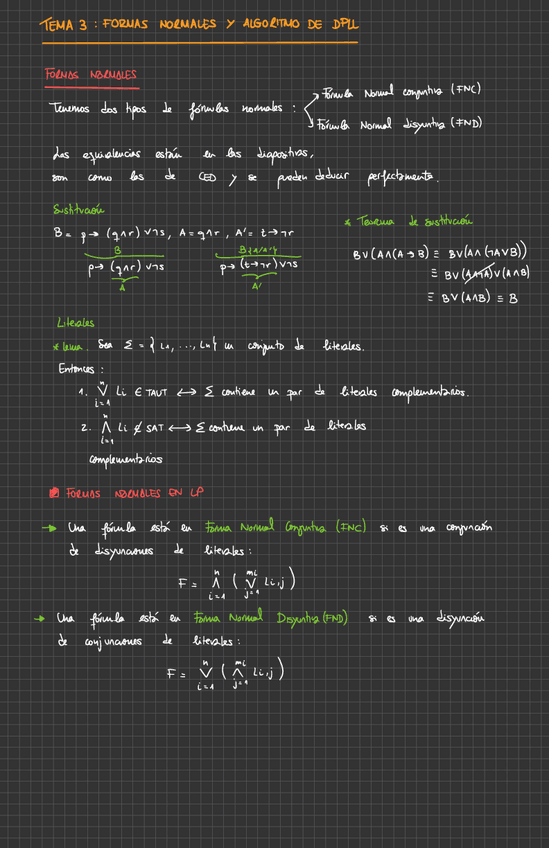 TEMA 3 : FORMAS NORMALES Y ALGORITMO DE DPLL
FORMAS NORMALES
Tenemos dos tipos de fórmulas normales :
Fórmula Normal conjuntiva (FNC)
Fórmula Normal disyuntiva (FND)
Las equivalencias están en las diapositivas,
son como las de CED y se pueden deducir perfectamente.
Sustitución
B = p → (q∧r) ∨¬s, A = q∧r , A' = t → ¬r
B
p → (q∧r) ∨¬s
A
B{A/A'}
p → (t→¬r) ∨¬s
A'
* Teorema de sustitución
B∨(A∧(A→B) ≡ B∨(A∧(¬A∨B))
≡ B∨(A∧¬A)∨(A∧B)
≡ B∨(A∧B) ≡ B
Literales
* Lema. Sea Σ = { L1, ..., Ln } un conjunto de literales.
Entonces :
1. ⋁ i=1 n Li ∈ TAUT ⟷ Σ contiene un par de literales complementarios.
2. ⋀ i=1 n Li ∉ SAT ⟷ Σ contiene un par de literales
complementarios
FORMAS NORMALES EN LP
→ Una fórmula está en Forma Normal Conjuntiva (FNC) si es una conjunción
de disyunciones de literales :
F = ⋀ i=1 n ( ⋁ j=1 mi Li,j )
→ Una fórmula está en Forma Normal Disyuntiva (FND) si es una disyunción
de conjunciones de literales :
F = ⋁ i=1 n ( ⋀ j=1 mi Li,j )